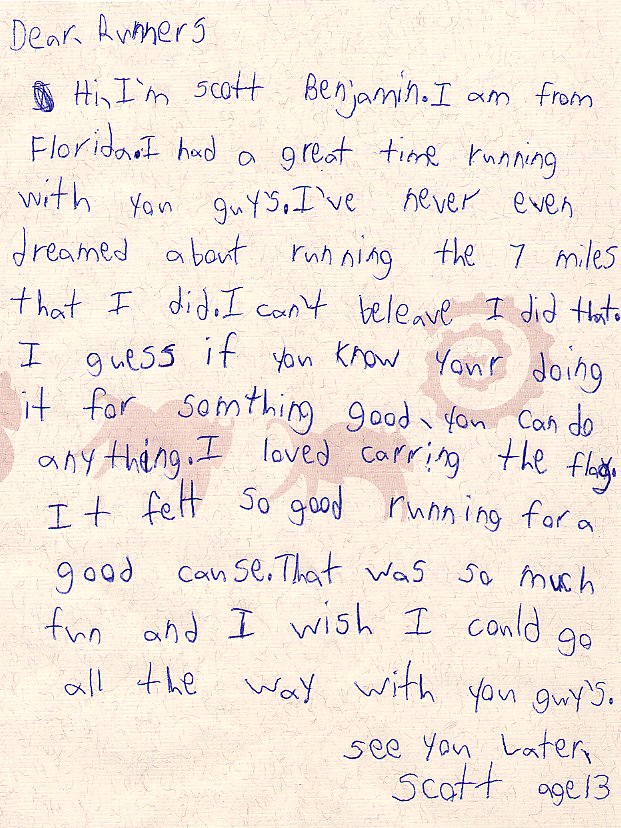 Dear Runners
Hi, I'm scott Benjamin. I am from
Florida. I had a great time running
with you guy's. I've never even
dreamed about running the 7 miles
that I did. I can't beleave I did that.
I guess if you know your doing
it for somthing good, you can do
anything. I loved carring the flag.
It felt so good running for a
good cause. That was so much
fun and I wish I could go
all the way with you guy's.
see you Later,
Scott age 13